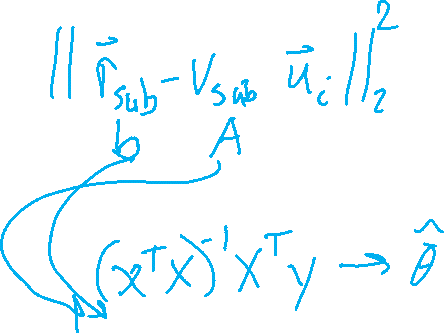 ‖ r⃗_sub - V_sub u⃗_i ‖₂²
b A
(XᵀX)⁻¹Xᵀy → θ̂